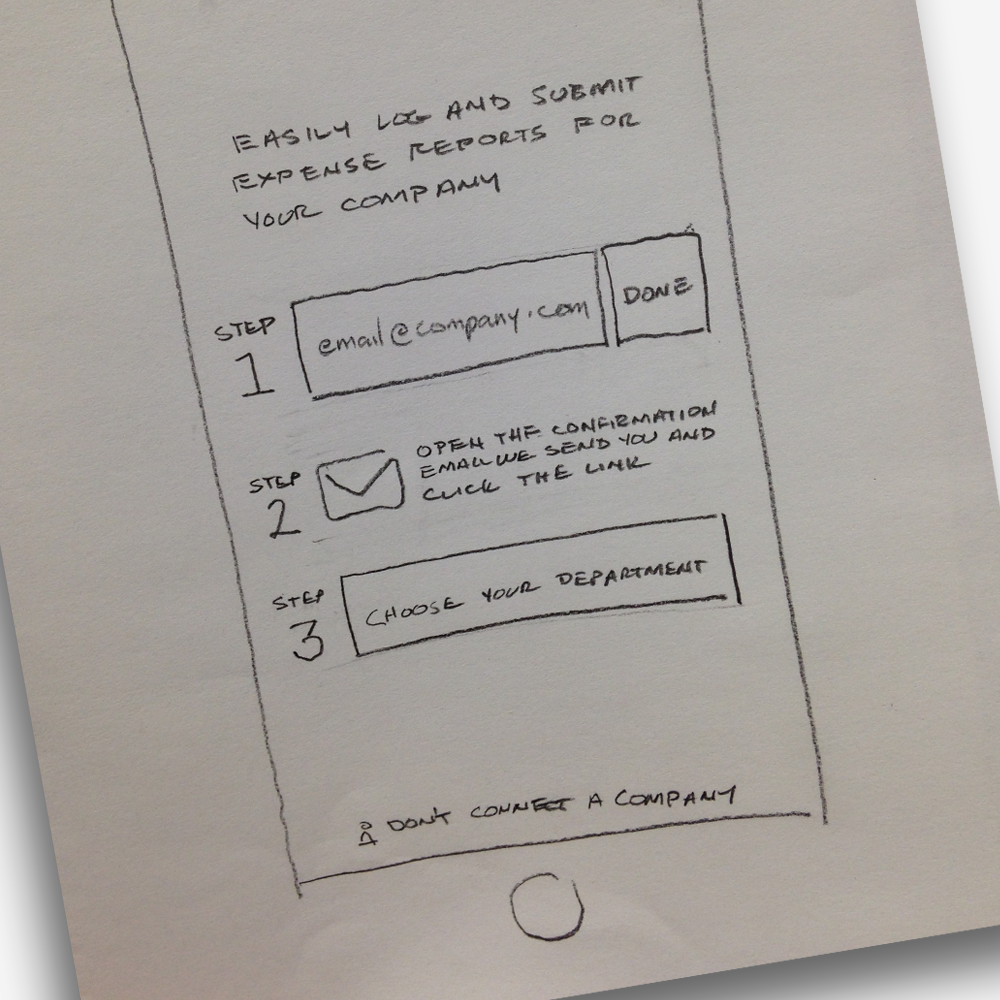 EASILY LOG AND SUBMIT
EXPENSE REPORTS FOR
YOUR COMPANY
STEP
1
email@company.com
DONE
STEP
2
OPEN THE CONFIRMATION
EMAIL WE SEND YOU AND
CLICK THE LINK
STEP
3
CHOOSE YOUR DEPARTMENT
DON'T CONNECT A COMPANY